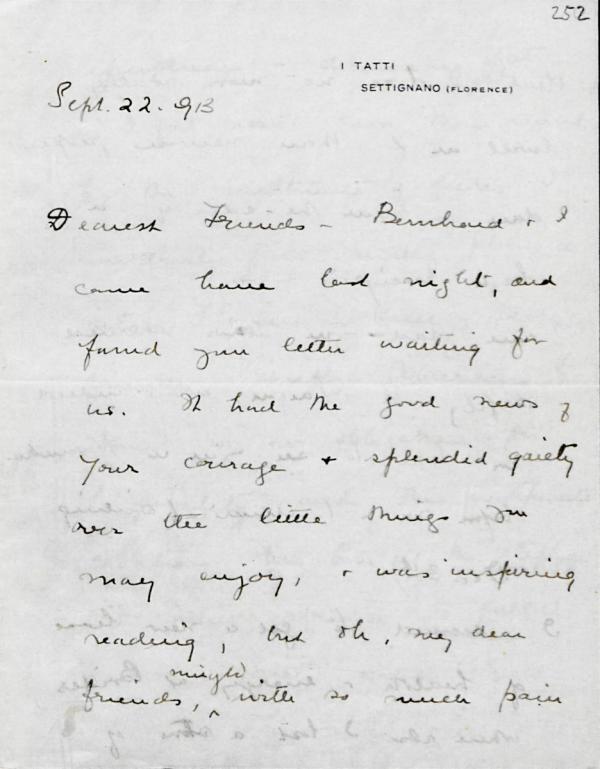 252
I TATTI
SETTIGNANO (FLORENCE)
Sept. 22. 913
Dearest Friends - Bernhard & I
came home last night, and
found your letter waiting for
us. It had the good news of
your courage & splendid gaiety
over the little things you
may enjoy, & was inspiring
reading, but oh, my dear
mingled
friends, ^ with so much pain